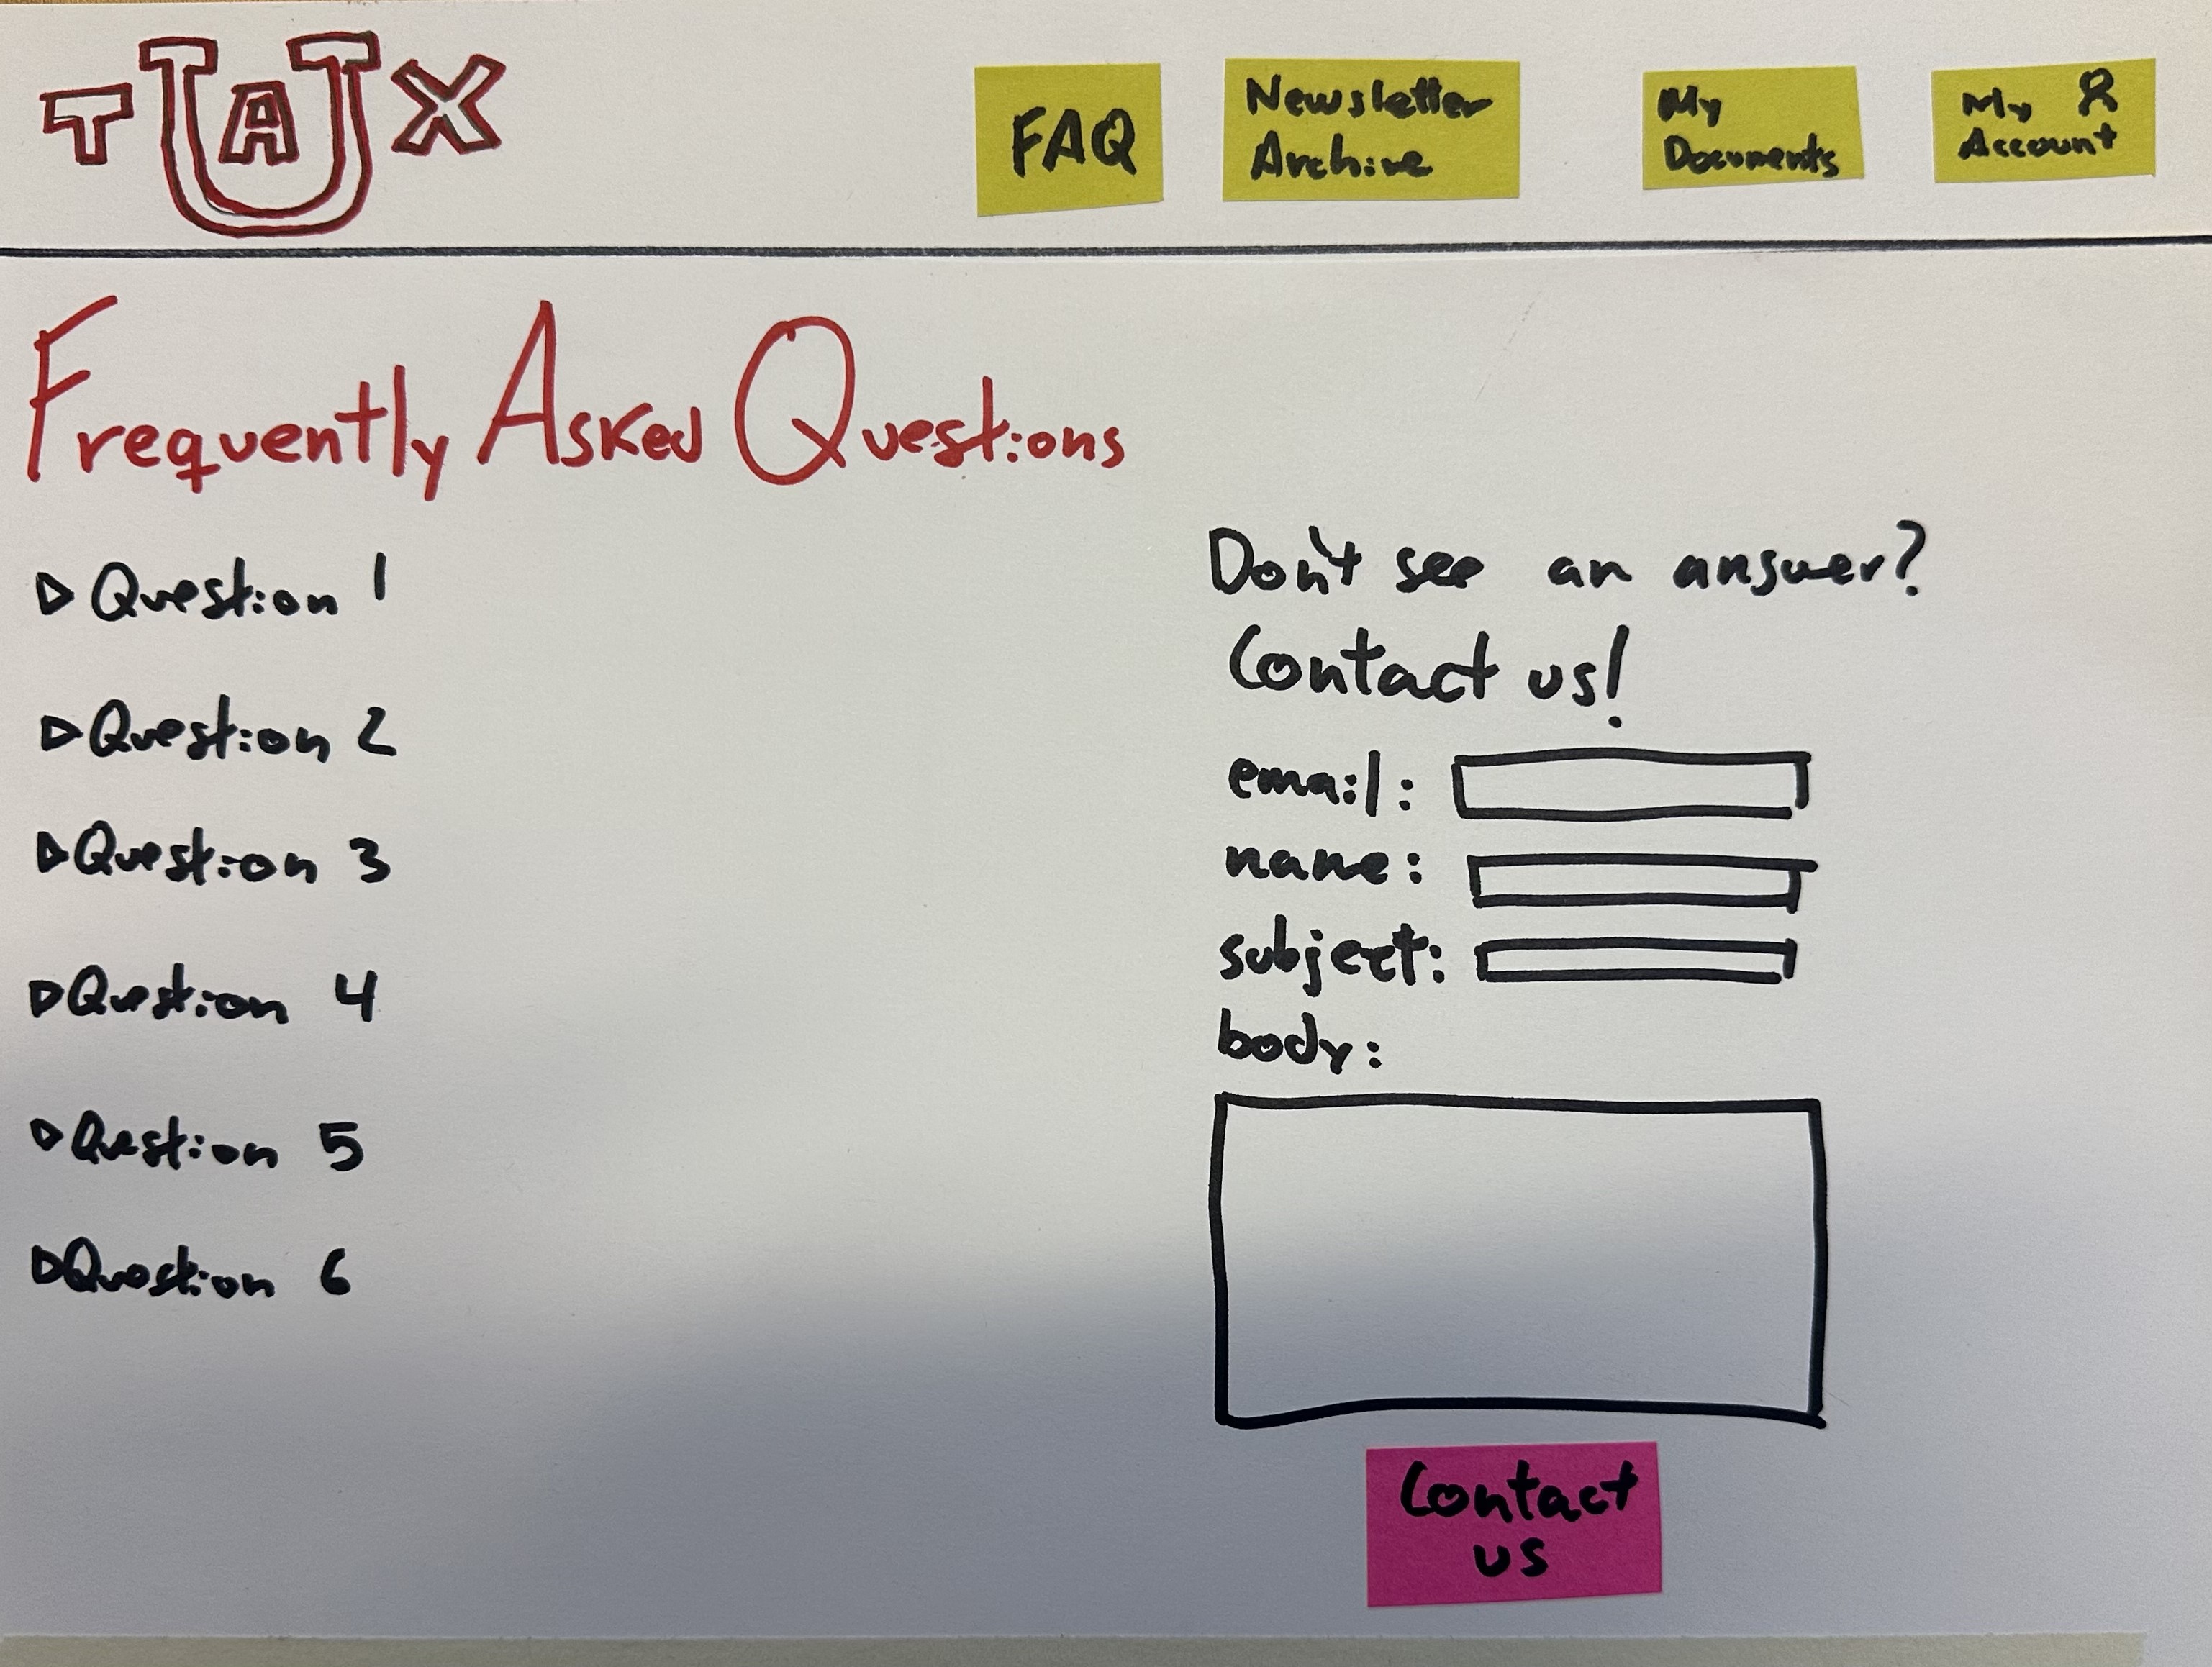 TUAX
FAQ
Newsletter
Archive
My
Documents
My
Account
Frequently Asked Questions
Question 1
Question 2
Question 3
Question 4
Question 5
Question 6
Don't see an answer?
Contact us!
email:
name:
subject:
body:
Contact
us